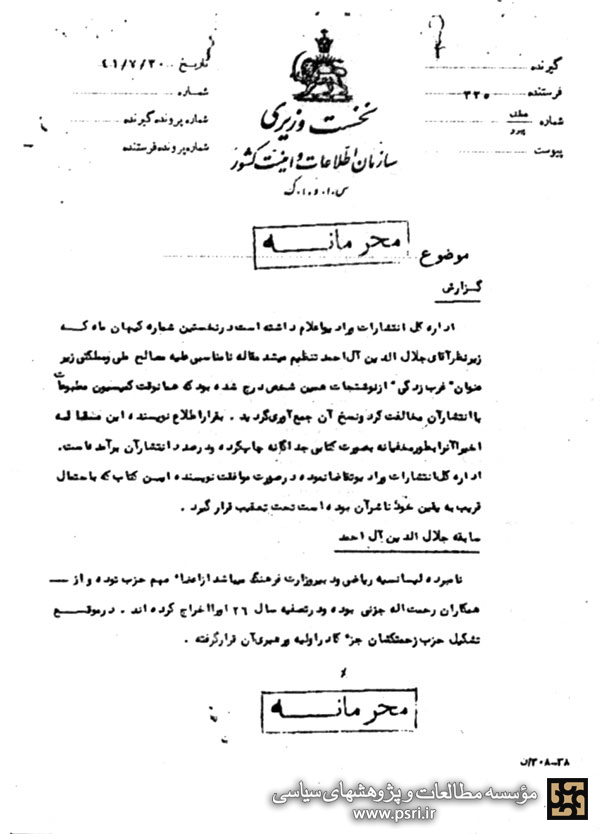 گیرنده
فرستنده ۳۳۵
شماره عطف پیرو
پیوست
نخست وزیری
سازمان اطلاعات و امنیت کشور
س.ا.و.ا.ک
تاریخ ۴۱/۷/۳۰
شماره
شماره پرونده گیرنده
شماره پرونده فرستنده
محرمانه
موضوع
گزارش
اداره کل انتشارات و رادیو اعلام داشته است در نخستین شماره کیهان ماه که
زیر نظر آقای جلال الدین آل احمد تنظیم میشد مقاله نامناسبی علیه مصالح ملی و مملکتی زیر
عنوان "غرب زدگی" از نوشتجات همین شخص درج شده بود که همانوقت کمیسیون مطبوعات
با انتشار آن مخالفت کرد و نسخ آن جمع آوری گردید . بقرار اطلاع نویسنده این مقاله
اخیرا آنرا بطور مخفیانه بصورت کتابی جداگانه چاپ کرده و درصدد انتشار آن برآمده است.
اداره کل انتشارات و رادیو تقاضا نموده در صورت موافقت نویسنده این کتاب که باحتمال
قریب به یقین خود ناشر آن بوده است تحت تعقیب قرار گیرد .
سابقه جلال الدین آل احمد
نامبرده لیسانسیه ریاضی و دبیر وزارت فرهنگ میباشد از اعضاء مهم حزب توده و از
همکاران رحمت اله جزنی بوده و در تصفیه سال ۲۶ او را اخراج کرده اند . در موقع
تشکیل حزب زحمتکشان جزء کادر اولیه و رهبری آن قرار گرفته .
محرمانه
۳۰۸-۳۸/ن
مؤسسه مطالعات و پژوهشهای سیاسی
www.psri.ir